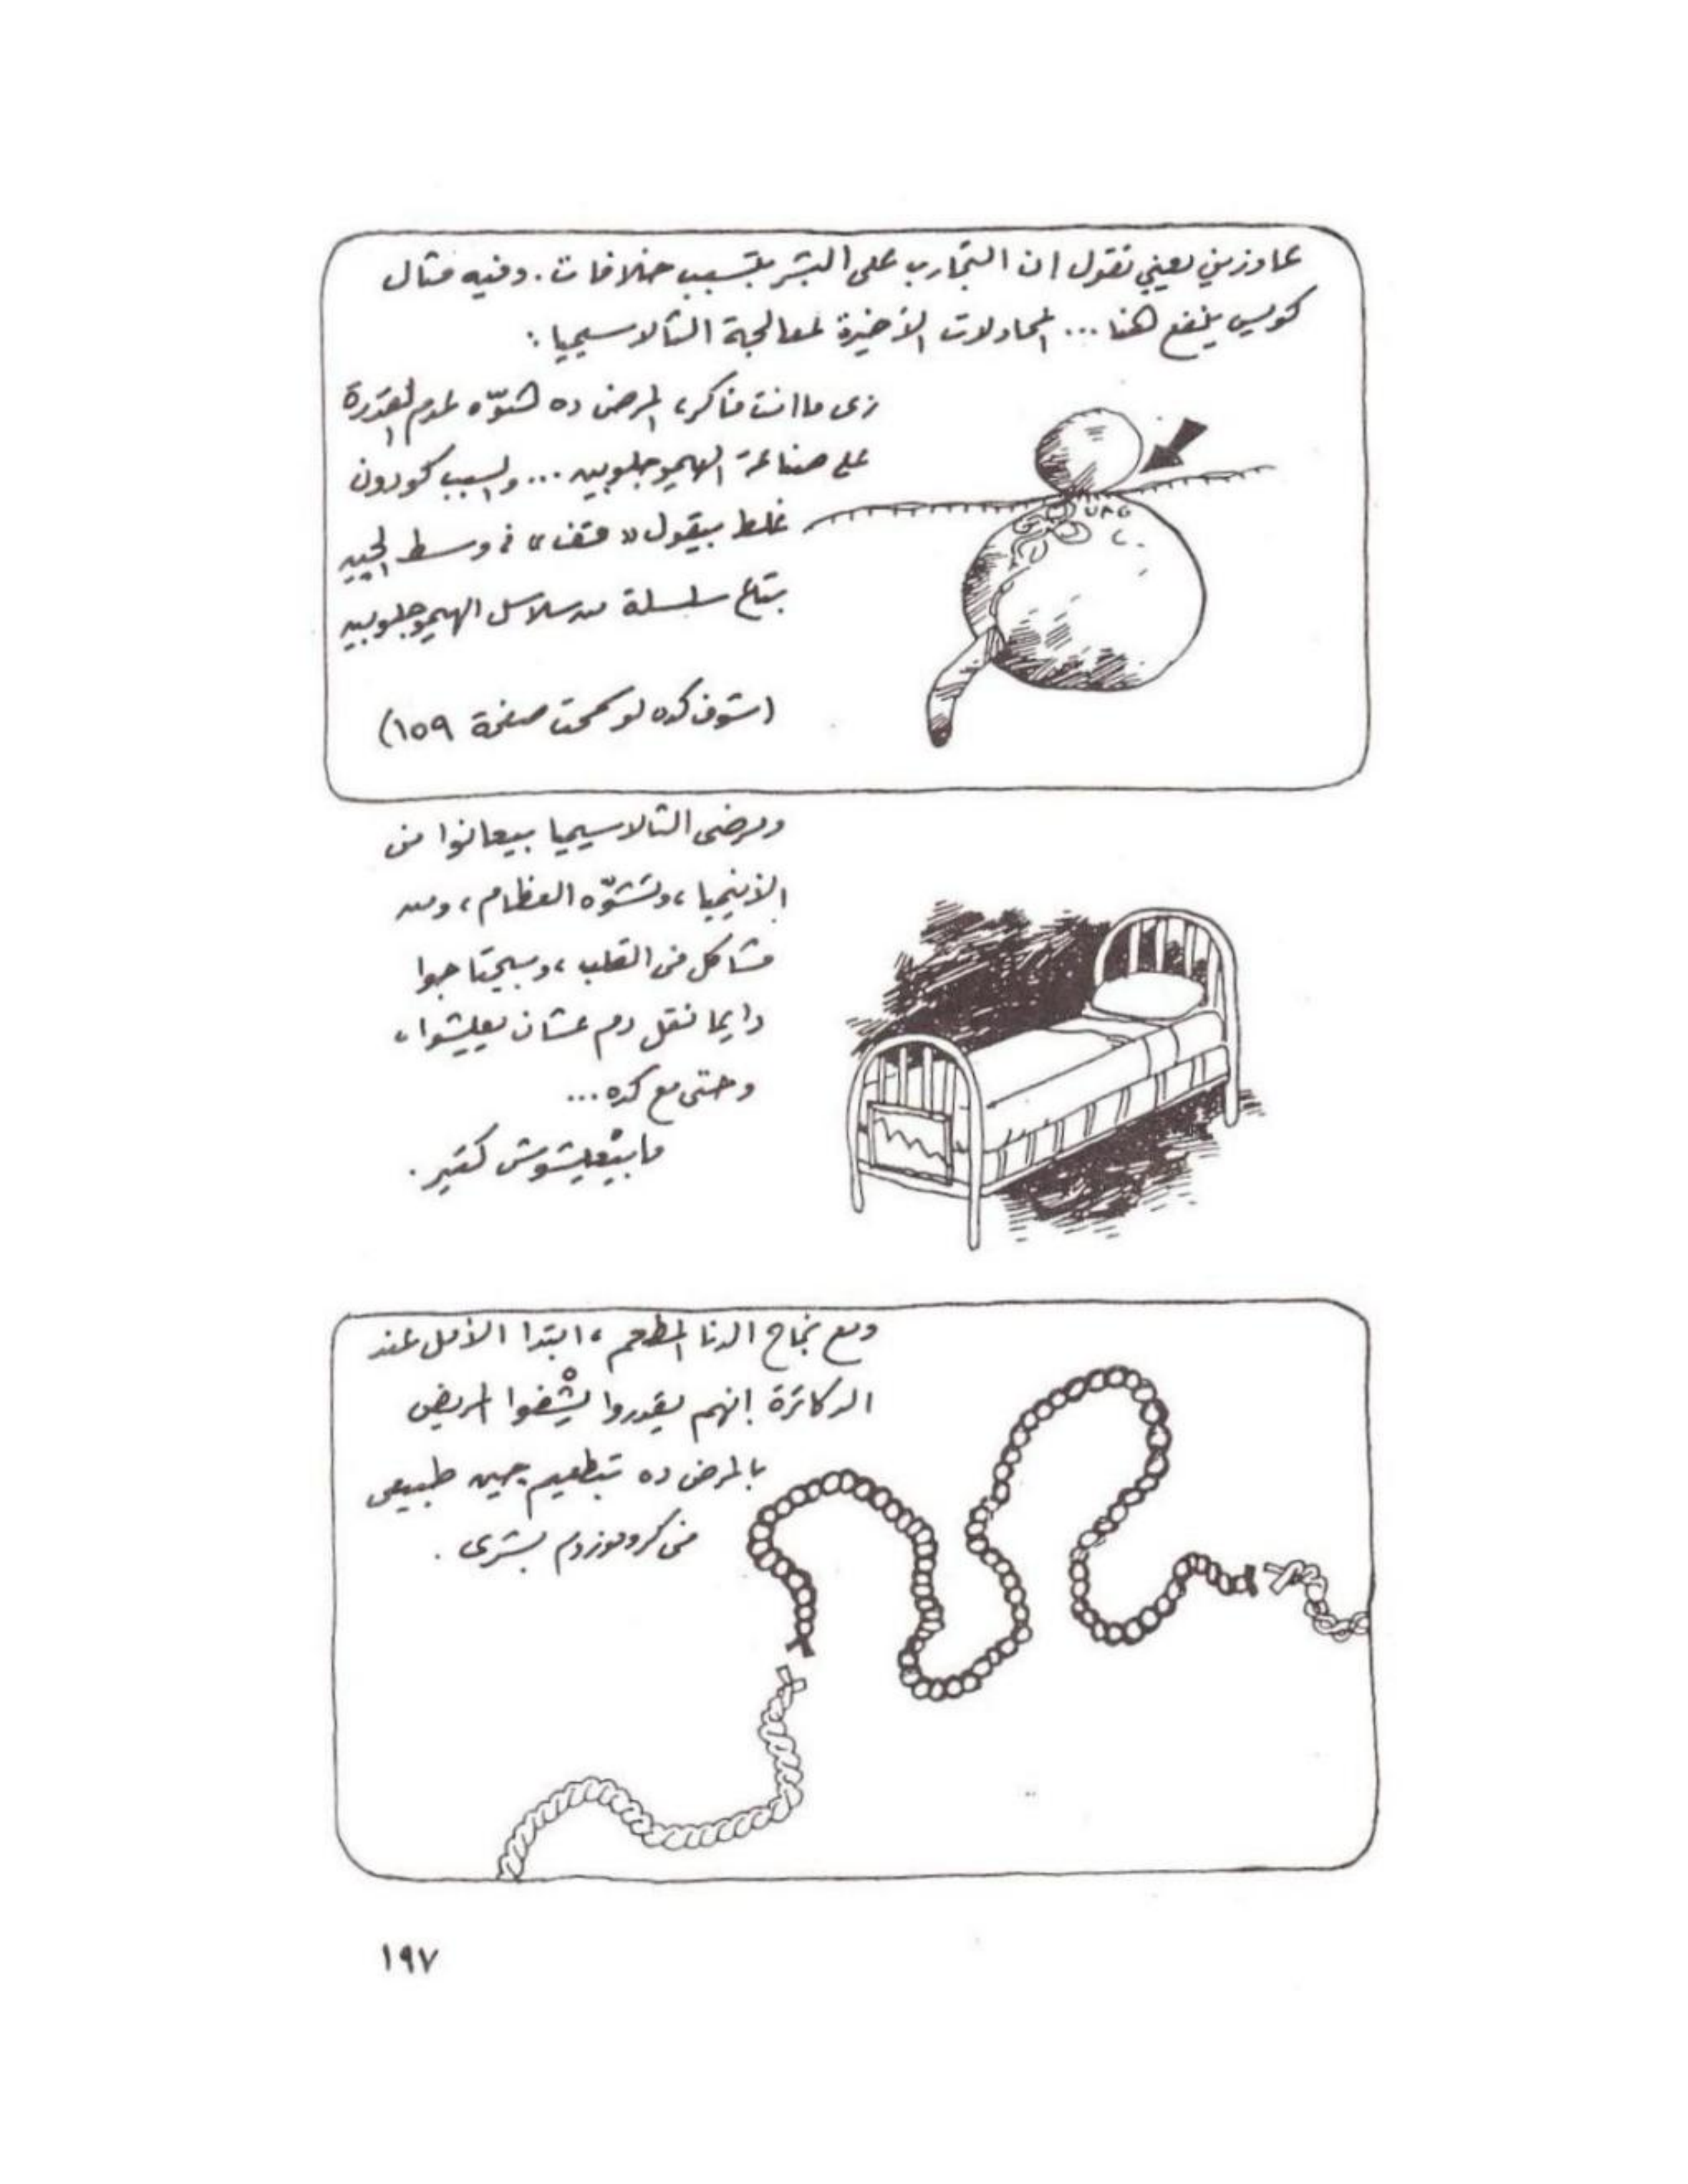 عاوزين يعني نقول ان التجارب على البشر بتسبب خلافات. وفيه مثال
كويس ينفع هنا ... المحاولات الأخيرة لمعالجة الثالاسيميا :
زى ما انت فاكر، المرض ده هوّه عدم القدرة
على صناعة الهيموجلوبين ... والسبب كودون
غلط بيقول « قف » فى وسط الجين
بتاع سلسلة من سلاسل الهيموجلوبين
UAG
(شوف كده لو سمحت صفحة ١٥٩)
ومرضى الثالاسيميا بيعانوا من
الأنيميا، وتشوّه العظام، ومن
مشاكل فى القلب، وبيحتاجوا
دايما نقل دم عشان يعيشوا،
وحتى مع كده ...
ما بيْعيشوش كتير .
ومع نجاح الدنا المطعم، ابتدا الأمل عند
الدكاترة إنهم يقدروا يشْفوا المريض
بالمرض ده بتطعيم جين طبيعى
فى كروموزوم بشرى .
١٩٧